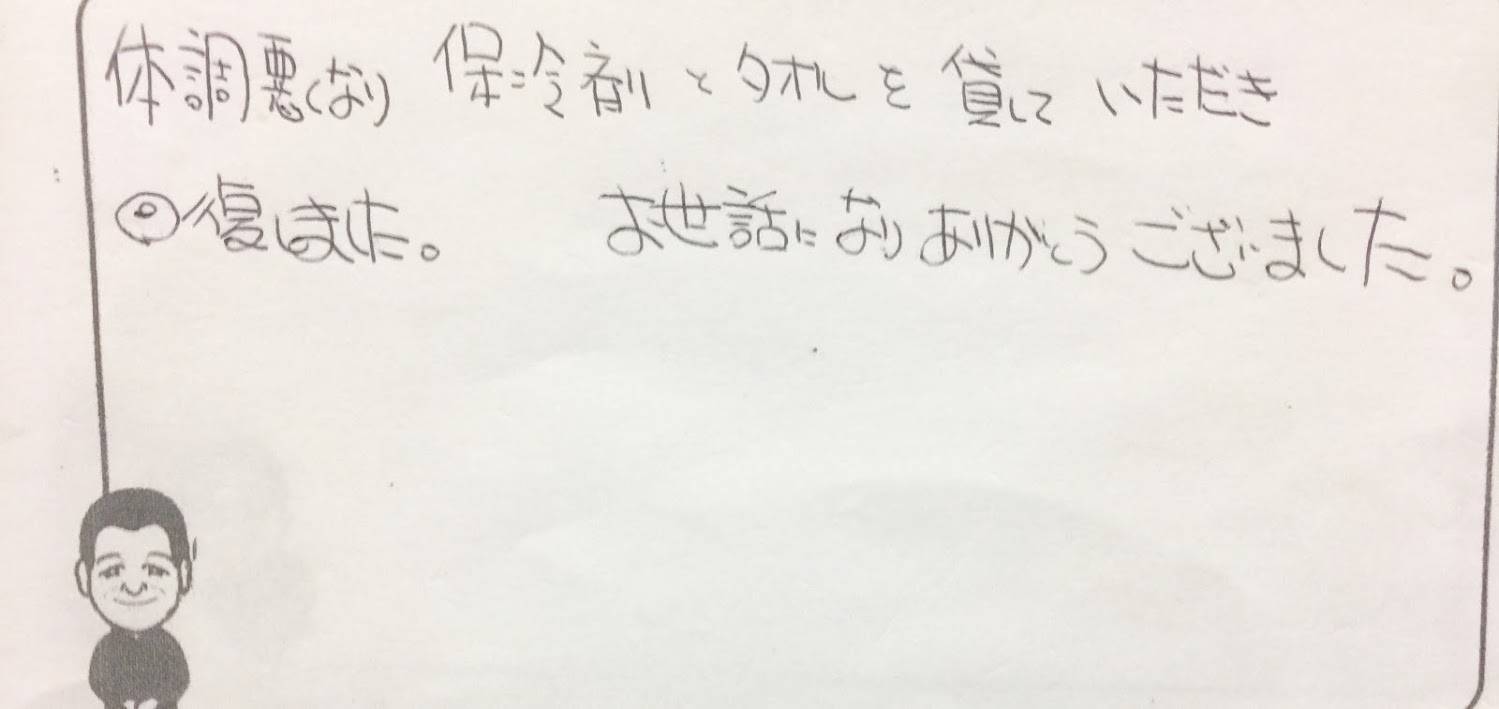 体調悪くなり 保冷剤 と タオル を 貸して いただき
回復しました。 お世話になり ありがとう ございました。